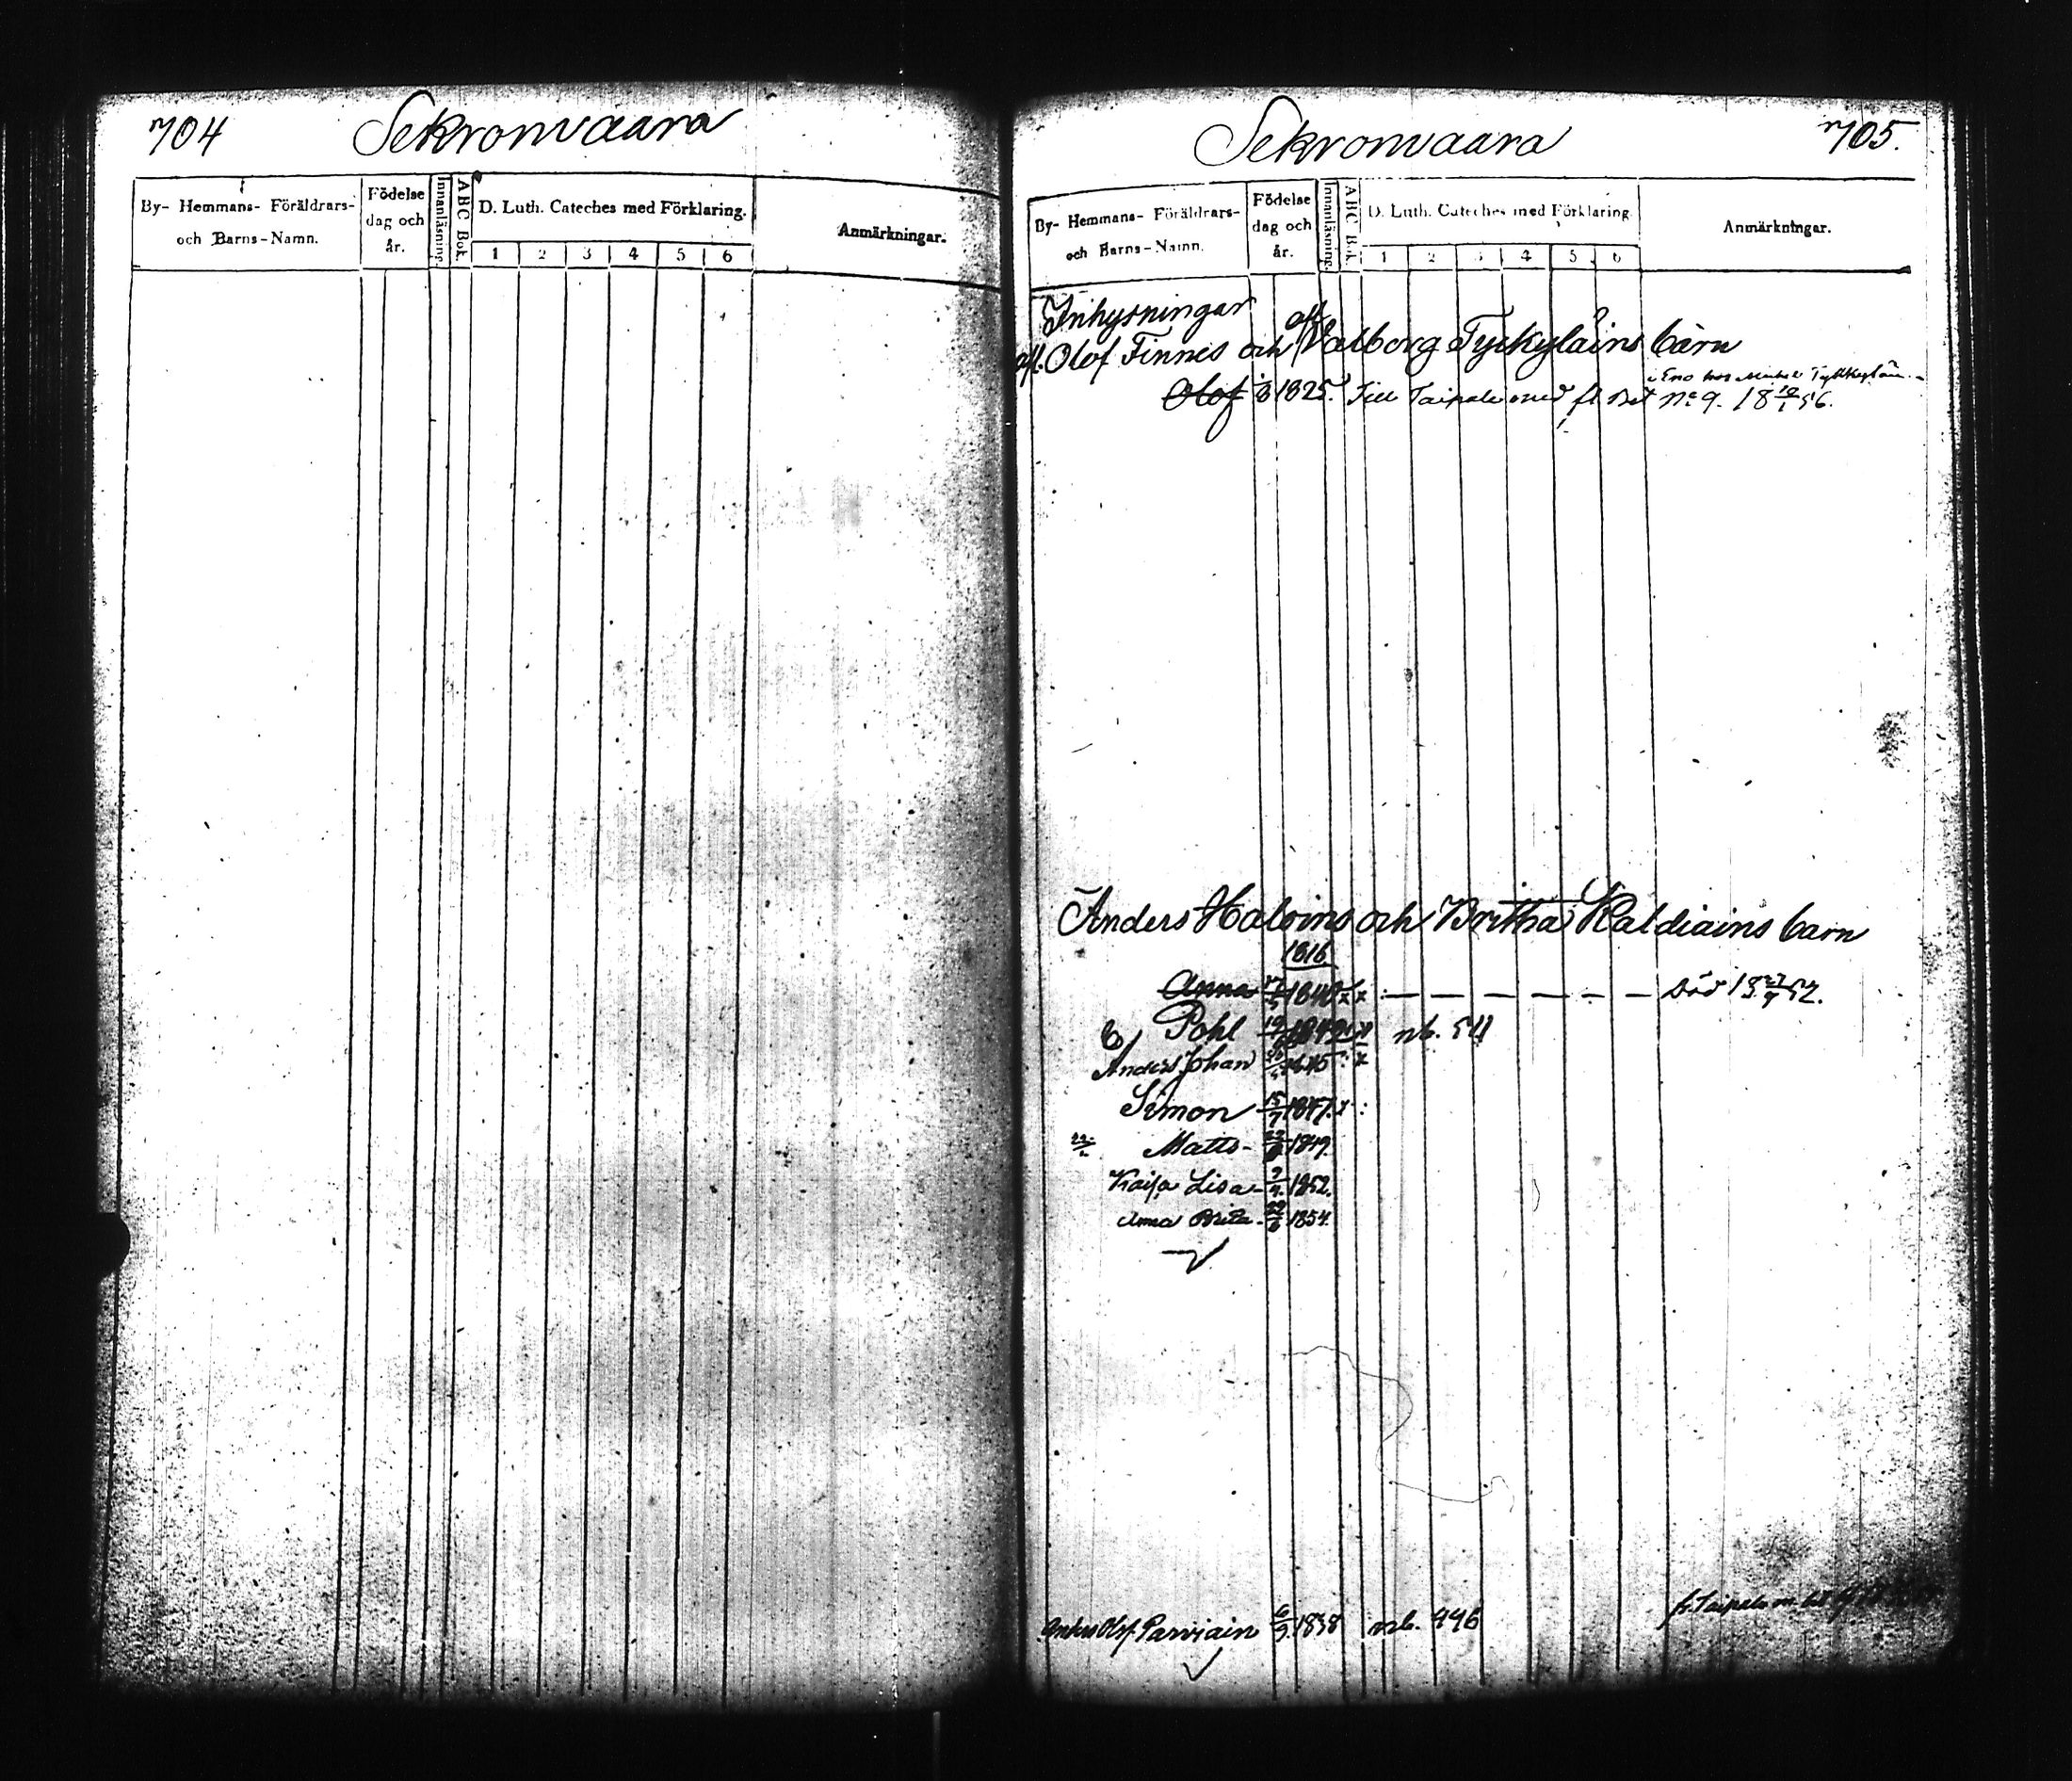 704 Sekronvaara
By- Hemmans- Föräldrars- och Barns-Namn.
Födelse dag och år.
Innanläsning.
ABC Bok.
D. Luth. Cateches med Förklaring.
1 2 3 4 5 6
Anmärkningar.
Sekronvaara 705.
By- Hemmans- Föräldrars- och Barns-Namn.
Födelse dag och år.
Innanläsning.
ABC Bok.
D. Luth. Cateches med Förklaring.
1 2 3 4 5 6
Anmärkningar.
Inhysningar
afl. Olof Finnes och afl. Valborg Tyckyläins barn
i Eno hos
Olof 1825. Till Taipale med fl. Bet No 9. 18 10/1 56.
Anders Halvins och Britha Kaldiains barn
1816
Anna 1840 x x : — — — — — — död 18 52.
Pohl nb. 511
Anders Johan 1845 : x
Simon 15/7 1847. x :
Matts - 1849.
Kaisa Lisa - 1852.
Anna Brita - 1854.
Anders Olof Parviain 6/9 1838 nb. 446 fr. Taipale m. bet